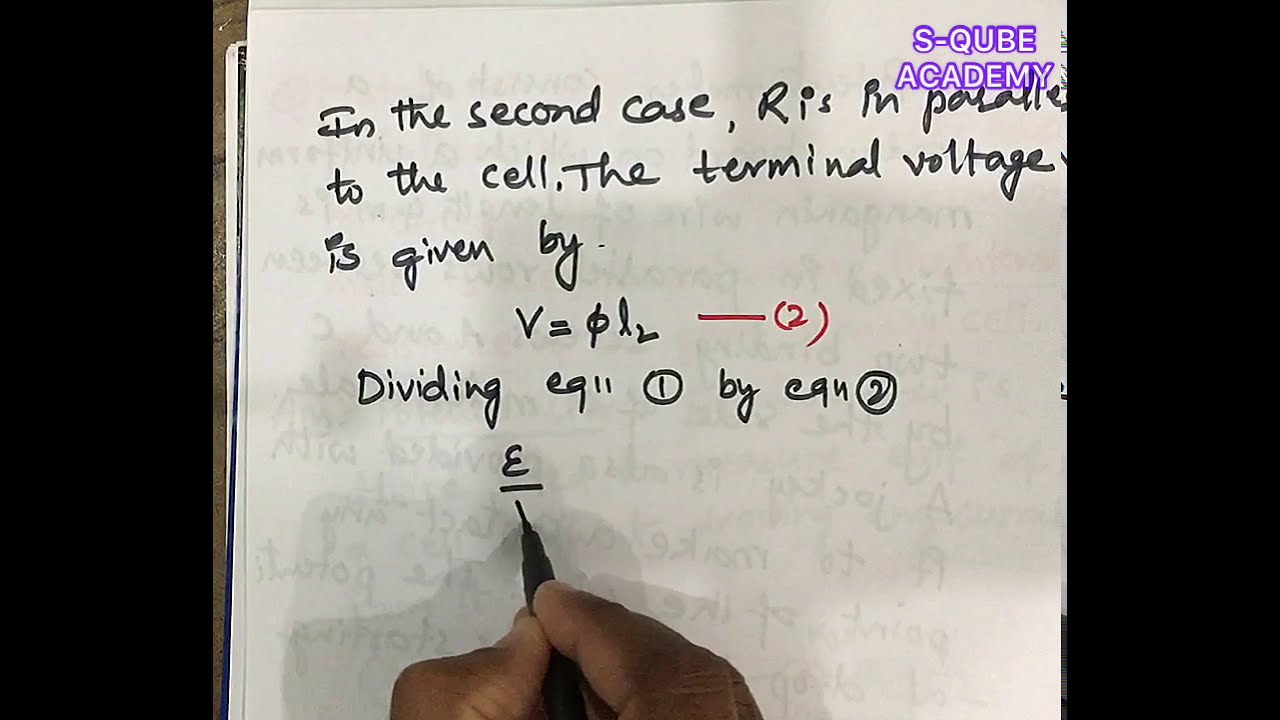 S-QUBE
ACADEMY
In the second case, R is in paralle
to the cell. The terminal voltage
is given by.
V = φ l₂ —— (2)
Dividing eqⁿ ① by eqⁿ ②
ε